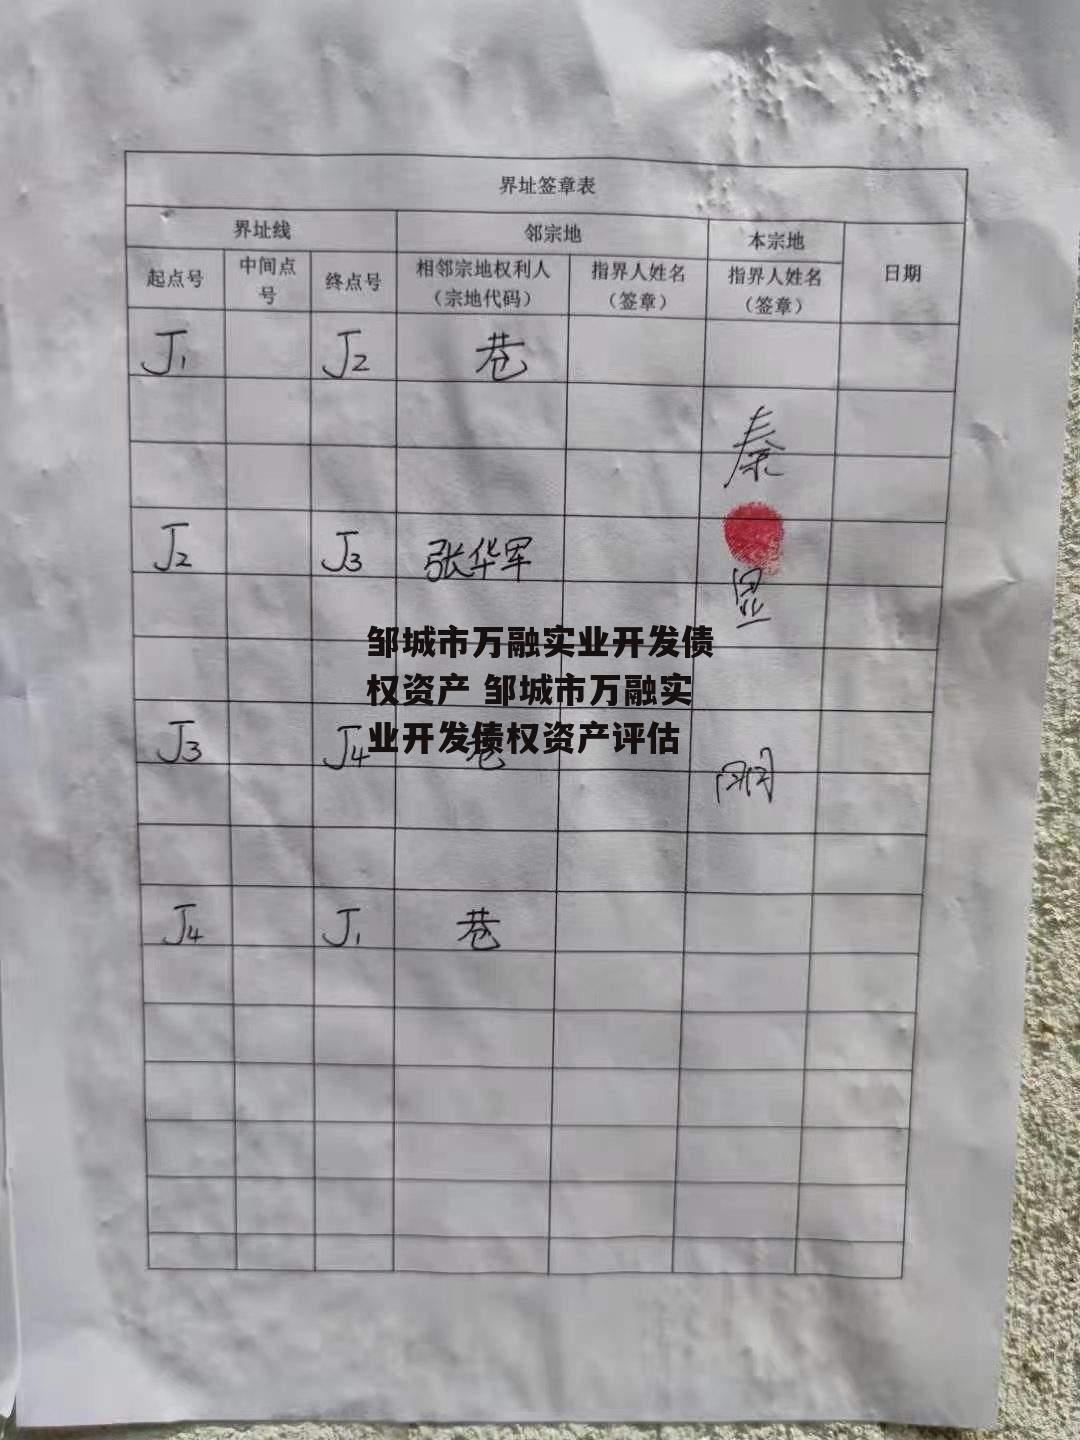 界址签章表
界址线 邻宗地 本宗地 日期
起点号 中间点号 终点号 相邻宗地权利人（宗地代码） 指界人姓名（签章） 指界人姓名（签章）
J1 J2 巷
秦
J2 J3 张华军
昱
邹城市万融实业开发债
权资产 邹城市万融实
业开发债权资产评估
J3 J4 巷
刚
J4 J1 巷